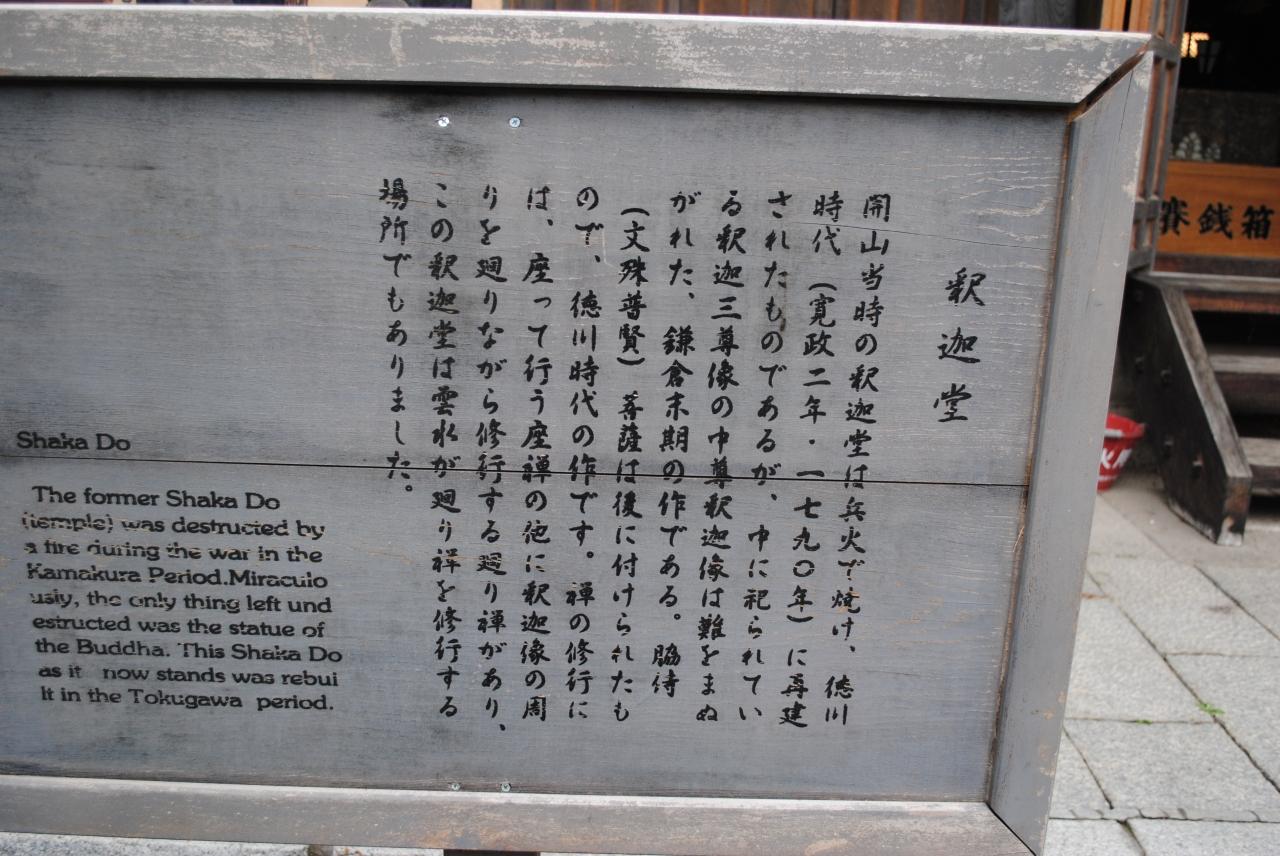 釈迦堂
開山当時の釈迦堂は兵火で焼け、徳川
時代（寛政二年・一七九〇年）に再建
されたものであるが、中に祀られてい
る釈迦三尊像の中尊釈迦像は難をまぬ
がれた、鎌倉末期の作である。脇侍
（文殊普賢）菩薩は後に付けられたも
ので、徳川時代の作です。禅の修行に
は、座って行う座禅の他に釈迦像の周
りを廻りながら修行する廻り禅があり、
この釈迦堂は雲水が廻り禅を修行する
場所でもありました。
Shaka Do
The former Shaka Do
(temple) was destructed by
a fire during the war in the
Kamakura Period.Miraculo
usly, the only thing left und
estructed was the statue of
the Buddha. This Shaka Do
as it now stands was rebui
lt in the Tokugawa period.
賽銭箱